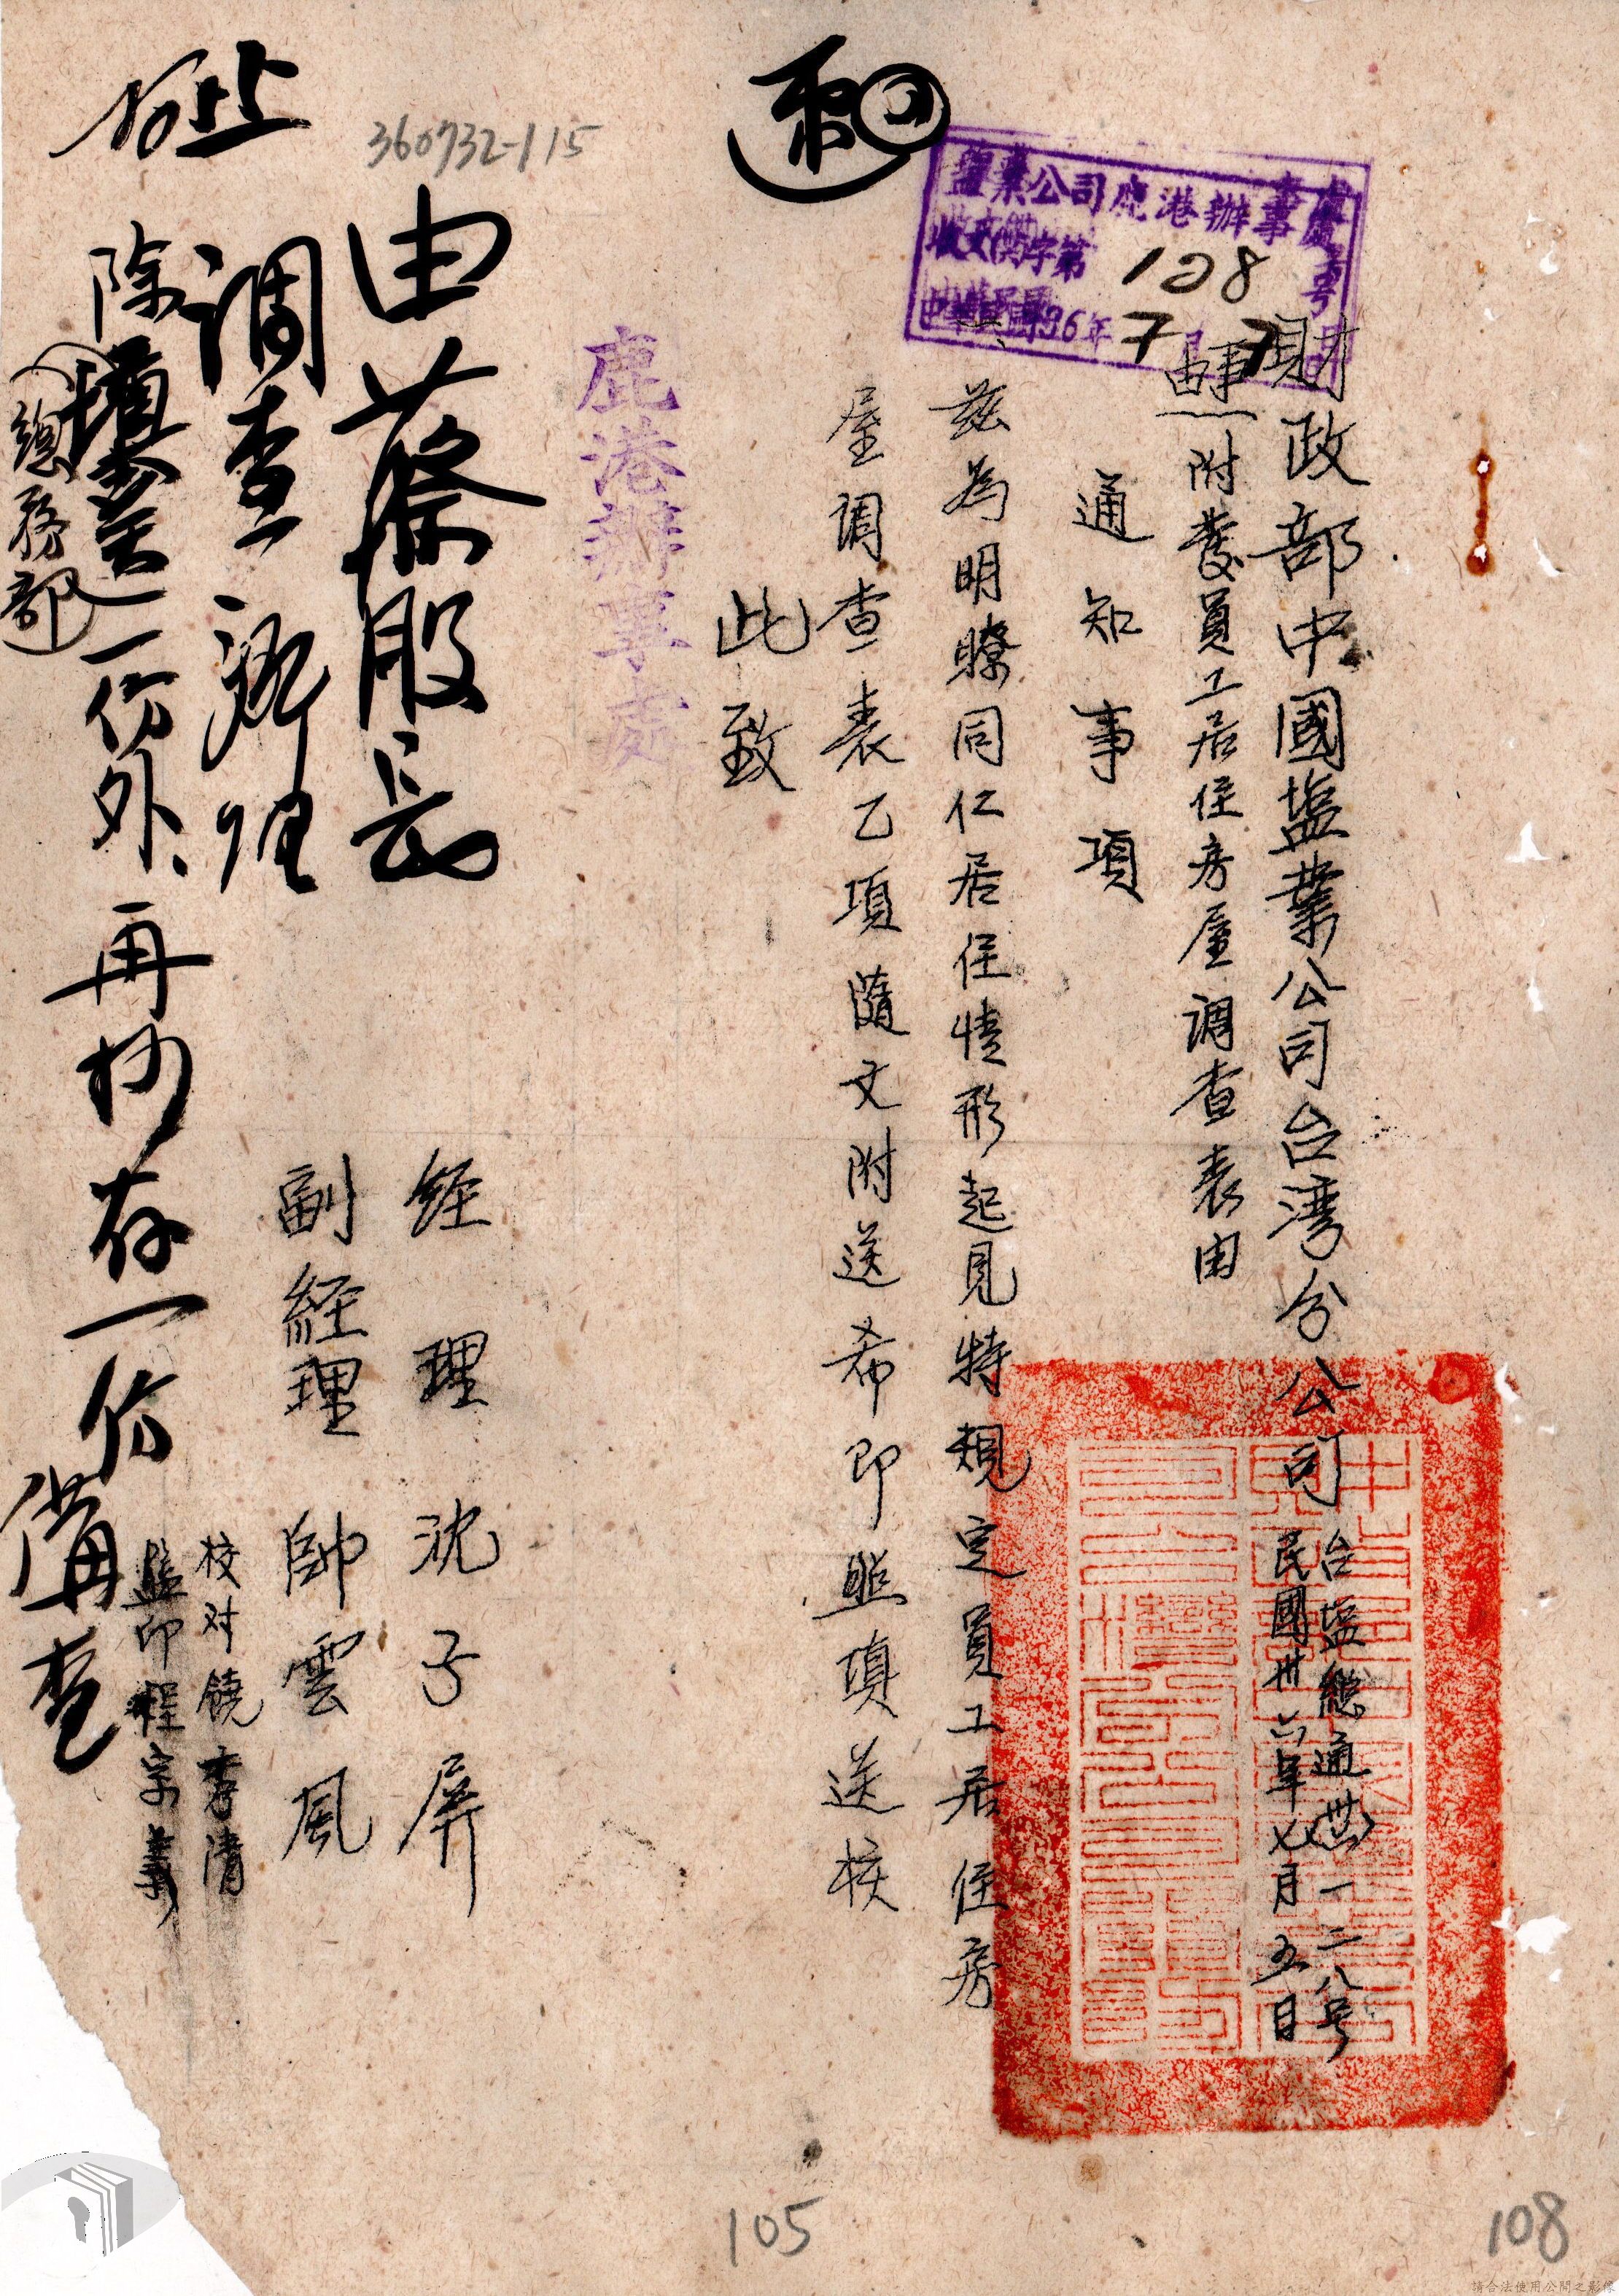 鹽業公司鹿港辦事處
收文 字第128号
中華民國36年7月7日
財政部中國塩業公司台湾分公司
台塩總通(卅六)一二八号
民國卅六年七月五日
事由 附發員工居住房屋調查表由
通知事項
茲為明瞭同仁居住情形起見特規定員工居住房
屋調查表乙項隨文附送希即照填送核
此致
鹿港辦事處
經理 沈子屏
副經理 帥雲風
校对 饒孝清
監印 程宗義
360732-115
由蔡股長
調查 辦理
除填送一份外、再抄存一份備查
(總務部)
105
108
請合法使用公開之影像